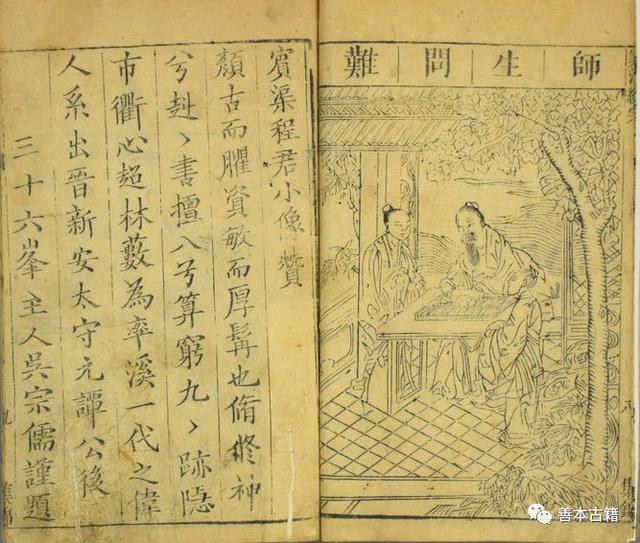 師生問難
賓渠程君小像讚
顏古而臞資敏而厚髯也脩修神
兮赳丶書擅八兮算窮九丶跡隱
市衢心超林藪為率溪一代之偉
人系出晉新安太守元譚公後
三十六峯主人吳宗儒謹題
善本古籍